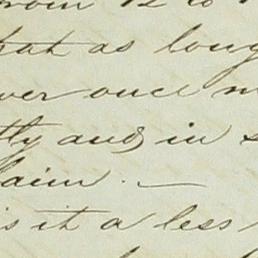 from 12 to
that as long
ver once
tly and in
laim. —
is it a less